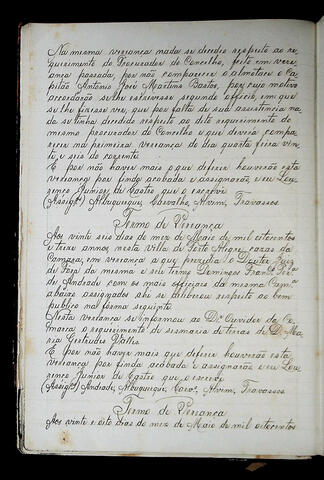 Na mesma veriança nada se decedio respeito ao re-
querimento do Procurador do Concelho, feito em veri-
ança passada, por não comparecer o almotace o Ca-
pitão Antonio José Martins Bastos, por cujo motivo
accordarão se lhe escrevesse segundo officio, em que
se lhe fizesse ver, que por falta de sua assistencia na-
da se tinha decedido respeito ao dito requerimento do
mesmo procurador do Concelho e que devia compa-
recer na primeira veriança do dia quarta feira vin-
te e seis do corrente.
E por não haver mais o que deferir houverão esta
veriança por finda acabada e assignarão, e eu Lou-
renço Junior de Castro que o escrevi
(Assigos) Albuquerque, Carvalho, Alvim, Travassos
Termo de Veriança
Aos vinte seis dias do mez de Maio de mil oitocentos
e treze annos, nesta villa de Porto Alegre, cazas da
Camara, em veriança a que prezidio o Doutor Juiz
de Fora da mesma e seu termo Domingos Franco
de Andrade com os mais officiaes da mesma Camara
abaixo assignados ahi se deliberou respeito ao bem
publico na forma seguinte.
Nesta veriança se informou ao Dr. Ouvidor da Co-
marca o requerimento de sesmaria de terras de D. Ma-
ria Gertrudes
E por não haver mais que deferir houverão esta
veriança por finda acabada e assignarão, e eu Lou-
renço Junior de Castro que o escrevi
(Assigos) Andrade, Albuquerque, Carvo, Alvim, Travassos
Termo de Veriança
Aos vinte e oito dias do mez de Maio de mil oitocentos